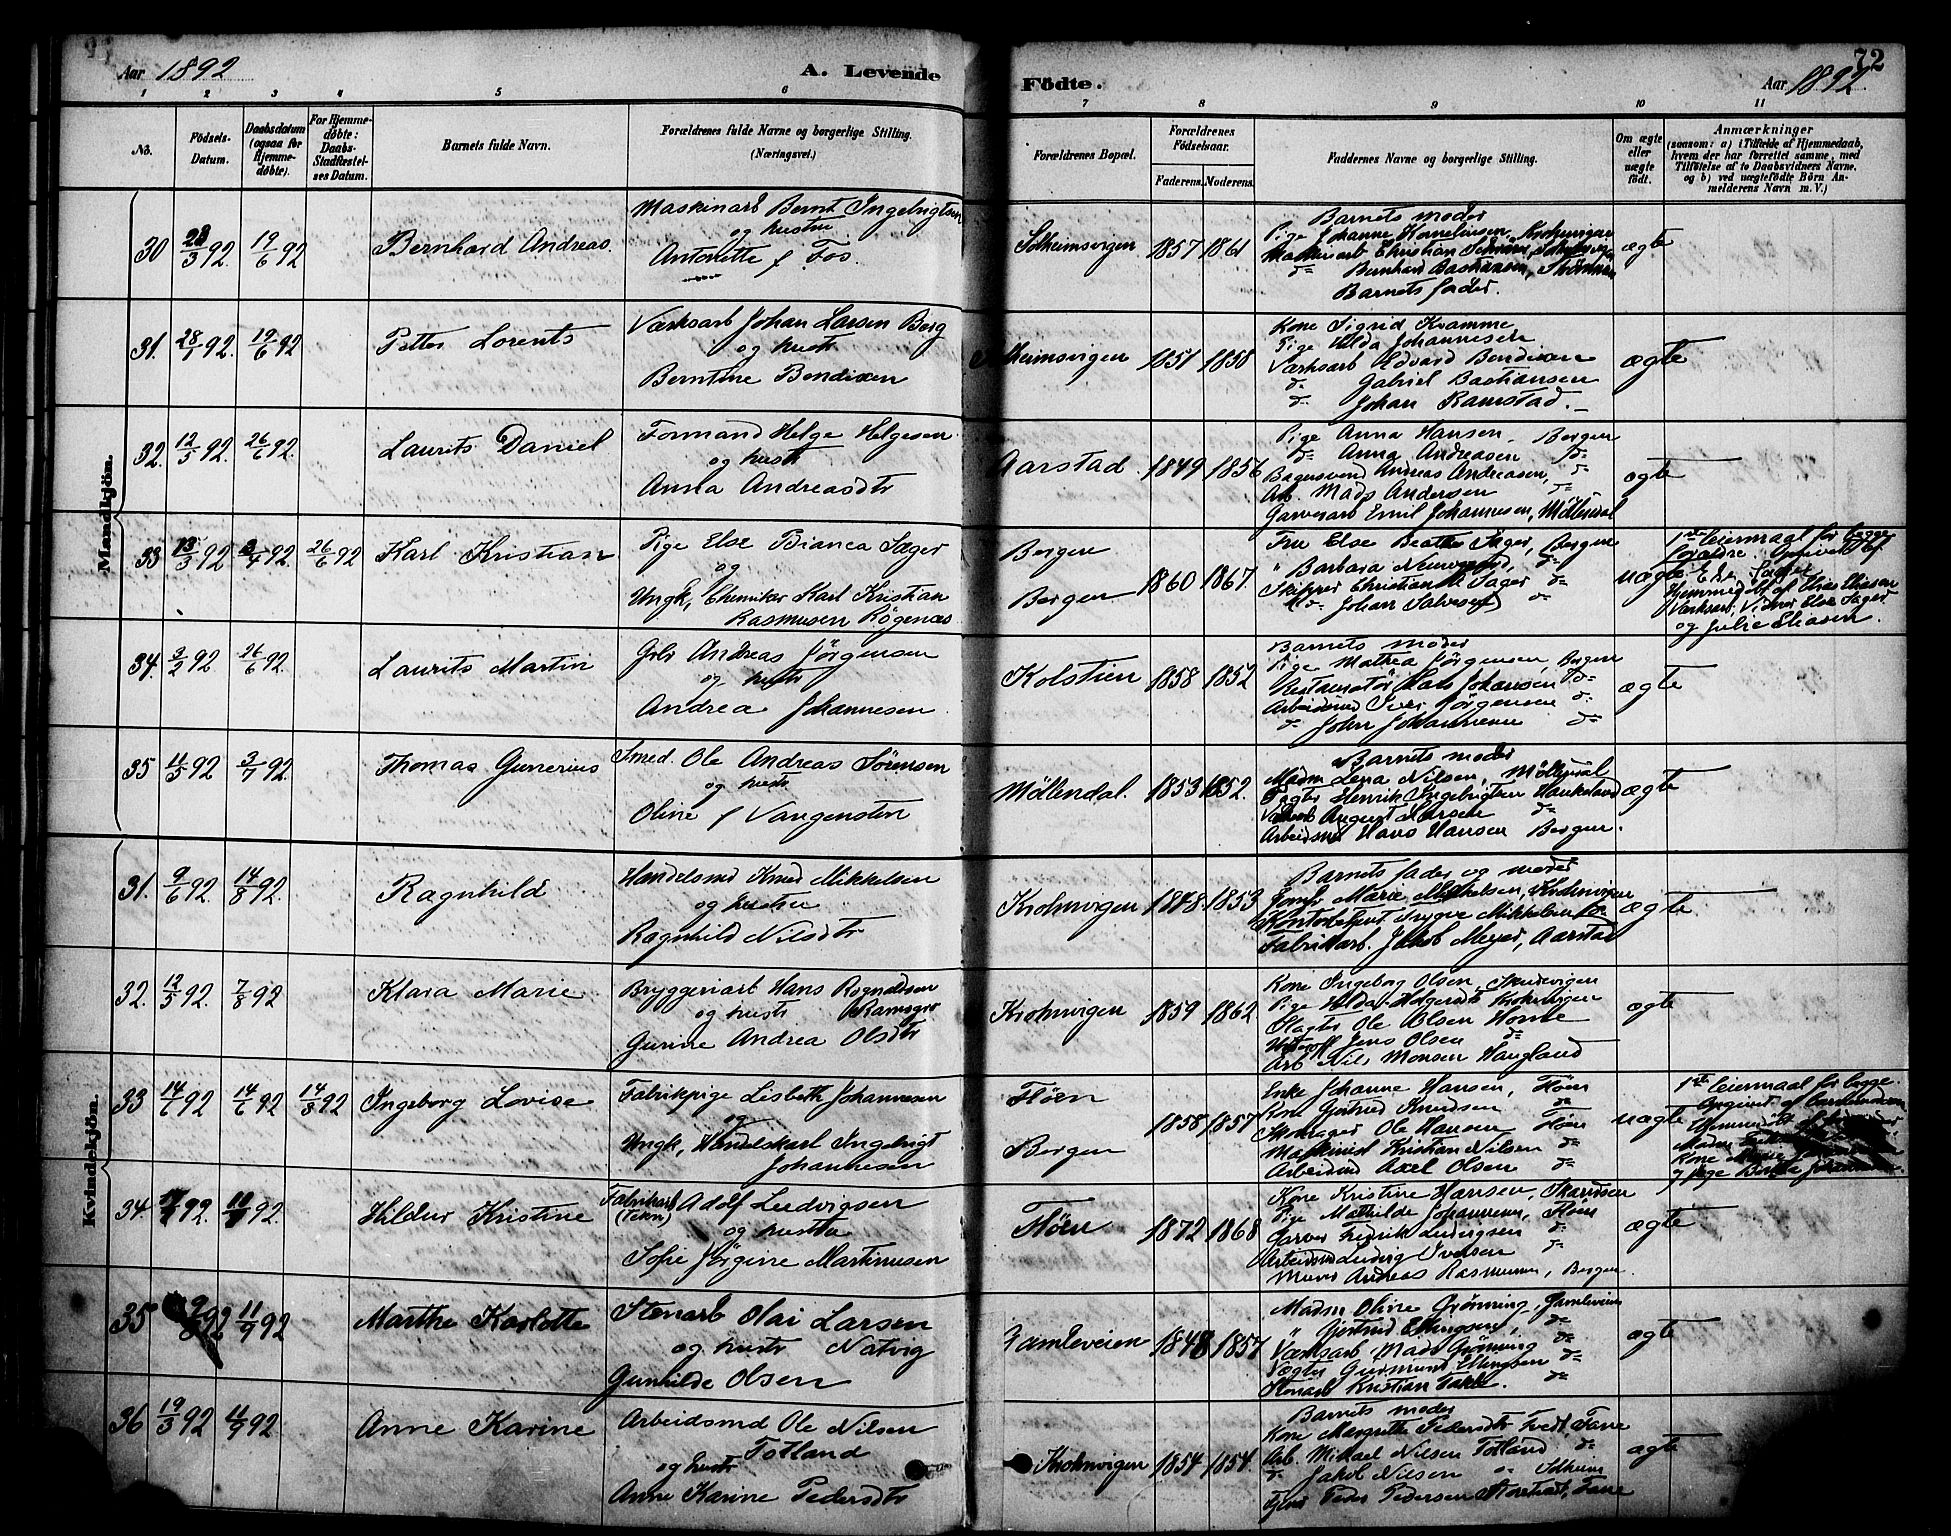 72
Aar 1892
A. Levende
Födte.
Aar 1892.
1 2 3 4 5 6 7 8 9 10 11
No.
Födsels-Datum.
Daabsdatum (ogsaa for Hjemmedøbte).
For Hjemmedøbte: Daabs-Stadfæstelses Datum.
Barnets fulde Navn.
Forældrenes fulde Navne og borgerlige Stilling. (Næringsvei.)
Forældrenes Bopæl.
Forældrenes Födselsaar.
Faderens. Moderens.
Faddernes Navne og borgerlige Stilling.
Om ægte eller uægte födt.
Anmærkninger
(saasom: a) i Tilfælde af Hjemmedaab, hvem der har forrettet samme, med Tilföielse af to Daabsvidners Navne, og b) ved uægtefödte Börn Anmelderens Navn m. V.)
Mandkjön.
30 23/3 92. 19/6 92 Bernhard Andreas.
Maskinarb Bernt Ingebrigtsen
og hustru
Antonette f. Fos.
Solheimsvigen 1857 1861
Barnets moder
Pige Johanne Korneliusen, Krohnvigen
Bernhard Bastiansen,
Barnets fader.
ægte
31. 28/1 92. 19/6 92 Petter Lorents
Værksarb Johan Larsen Berg
og hustr
Berntine Bendixen
Solheimsvigen 1851 1858
Kone Sigrid Kvamme
Pige Hilda Johannesen
Værksarb Edvard Bendixen
do Gabriel Bastiansen
do Johan Ramstad.
ægte
32. 12/5 92. 26/6 92. Laurits Daniel
Formand Helge Helgesen
og hustr
Anna Andreasdtr
Aarstad 1849 1856
Pige Anna Hansen, Bergen
do Anna Andreasen do
Bagersvend Andreas Andreasen, do
Arb. Mads Andersen do
Garverarb Emil Johannesen, Möllendal
ægte
33 13/3 92 3/4 92 26/6 92 Karl Kristian
Pige Else Bianca Sager
og
Ungk, Chemiker Karl Kristian
Rasmusen Rögenæs
Bergen
Bergen
1860 1867
Fru Else Beathe Sager, Bergen
" Barbara
Skipper Christian Sager do
Johan Salvesen do
uægte
1ste leiermaal for begge
forældre. Opgivet af
Else Sager
Hjemmedöbt af Elias Eliasen
Værksarb, Vidner Else Sager
og Julie Eliasen.
34. 3/2 92 26/6 92. Laurits Martin
Andreas Jörgensen
og hustr
Andrea Johannesen
Kolstien 1858 1852
Barnets moder
Pige Mathea Jörgensen, Bergen
Restauratör Hans Johansen do
Arbeidsmd Iver Jörgensen do
do John Johannesen do
ægte
35 11/5 92 3/7 92 Thomas Gunerius
Smed. Ole Andreas Sörensen
og hustr
Oline f Vangensten
Möllendal. 1853 1852.
Barnets moder
Madm Lena Nilsen, Möllendal
Vægter Henrik Ingebrigtsen Haukeland
August Larsen do
Arbeidsmd Hans Hansen Bergen.
ægte
Kvindekjön.
31. 9/6 92 14/8 92. Ragnhild
Handelsmd Knud Mikkelsen
og hustru
Ragnhild Nilsdtr
Krohnvigen 1848 1853
Barnets fader og moder
Jomfr Marie Mikkelsen, Krohnvigen
Kontorbetjent Trygve Mikkelsen do
Fabrikarb. Jakob Meyer, Aarstad
ægte.
32. 12/5 92. 7/8 92 Klara Marie
Bryggeriarb Hans Rognaldsen
og hustr Ramsgrø
Gurine Andrea Olsdtr
Krohnvigen 1859 1862
Kone Ingeborg Olsen,
Pige Hilda Holgersdtr Krohnvigen
Slagter Ole Olsen Horne
Underoff Jens Olsen do
Arb Nils Monsen Haugland
ægte
33 14/6 92 14/6 92 14/8 92 Ingeborg Lovise
Fabrikpige Lisbeth Johannesen
og
Ungk, Handelskarl Ingebrigt
Johannesen
Flöen
Bergen
1858 1857
Enke Johanne Hansen, Flöen
Kone Gjertrud Knudsen do
Ole Hansen Flöen
Maskinist Kristian Nilsen do
Arbeidsmd Axel Olsen do
uægte
1ste leiermaal for begge
Opgivet af barnemoderen
Hjemmedöbt
34. 17/ 92. 92. Hildur Kristine
Fabrikarb Adolf Ludvigsen
og hustru
Sofie Jörgine Martinusen
Flöen 1872 1868
Kone Kristine Hansen,
Pige Mathilde Johannesen, Flöen
Garver Fredrik Ludvigsen do
Arbeidsmd Ludvig Iversen do
Murer Andreas Rasmusen, Bergen.
ægte
35 92 11/9 92 Marthe Karlotte
Stenarb Olai Larsen
og hustr Natvig
Gunhilde Olsen
Gamleveien 1848 1857
Madm Oline Grönning, Gamleveien
" Gjertrud Ellingsen, do
Værksarb Mads Grönning do
Vægter Gudmund Ellingsen do
Stenarb Kristian Takle. do
ægte
36 19/3 92 11/9 92 Anne Karine
Arbeidsmd Ole Nilsen
Totland
og hustr
Anne Karine Pedersdtr
Krohnvigen 1854 1854.
Barnets moder
Kone Margrethe Pedersdtr Tvedt, Fane
Arb. Mikael Nilsen Totland do
do Jakob Nilsen Solheim
Peder Pedersen Fane
ægte